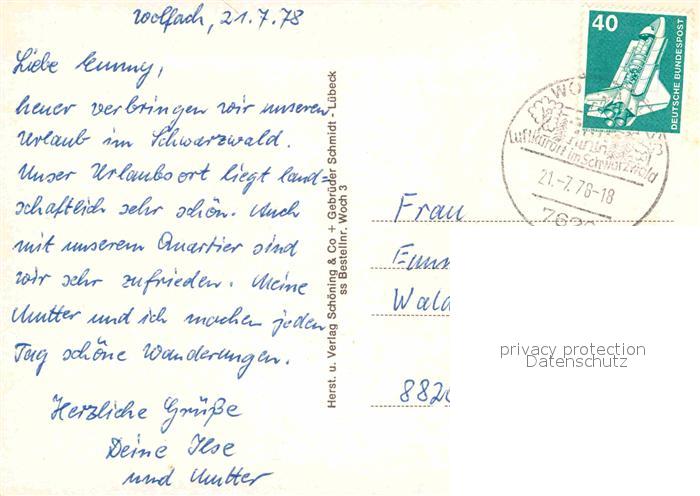 Wolfach, 21.7.78
Liebe Emmy,
heuer verbringen wir unseren
Urlaub im Schwarzwald.
Unser Urlaubsort liegt land-
schaftlich sehr schön. Auch
mit unserem Quartier sind
wir sehr zufrieden. Meine
Mutter und ich machen jeden
Tag schöne Wanderungen.
Herzliche Grüße
Deine Ilse
und Mutter
Herst. u. Verlag Schöning & Co + Gebrüder Schmidt - Lübeck
ss Bestellnr. Woch 3
40
DEUTSCHE BUNDESPOST
WO
Luftkurort im Schwarzwald
21.-7.78-18
762
Frau
Emm
Wald
882
privacy protection
Datenschutz